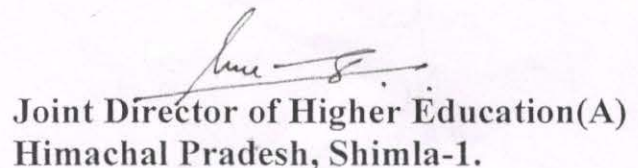 Joint Director of Higher Education(A)
Himachal Pradesh, Shimla-1.